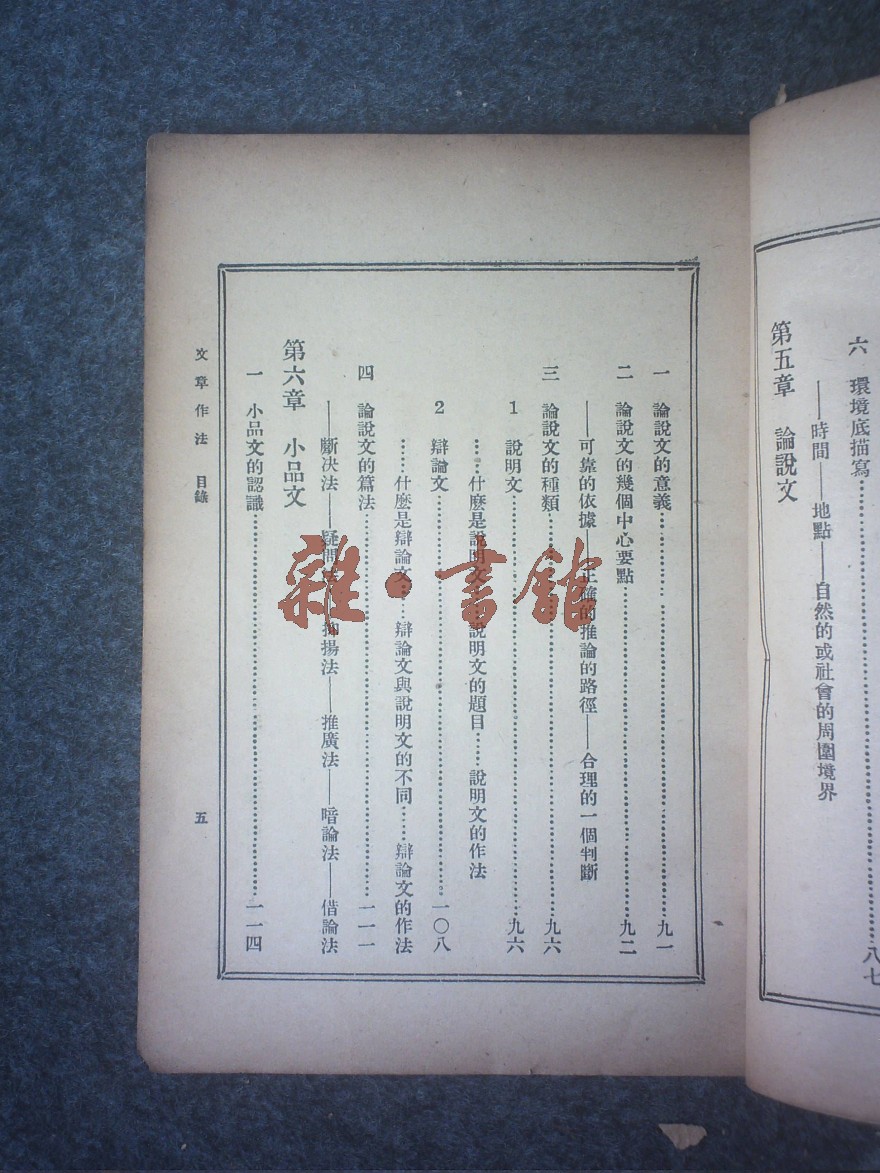 六 環境底描寫……八七
——時間——地點——自然的或社會的周圍境界
第五章 論說文
一 論說文的意義……九一
二 論說文的幾個中心要點……九二
——可靠的依據——正確的推論的路徑——合理的一個判斷
三 論說文的種類……九六
1 說明文……九六
……什麼是說明文……說明文的題目……說明文的作法
2 辯論文……一〇八
……什麼是辯論文……辯論文與說明文的不同……辯論文的作法
四 論說文的篇法……一一一
——斷決法——疑問法——抑揚法——推廣法——暗論法——借論法
第六章 小品文
一 小品文的認識……一一四
文章作法 目錄
五
雜·書館